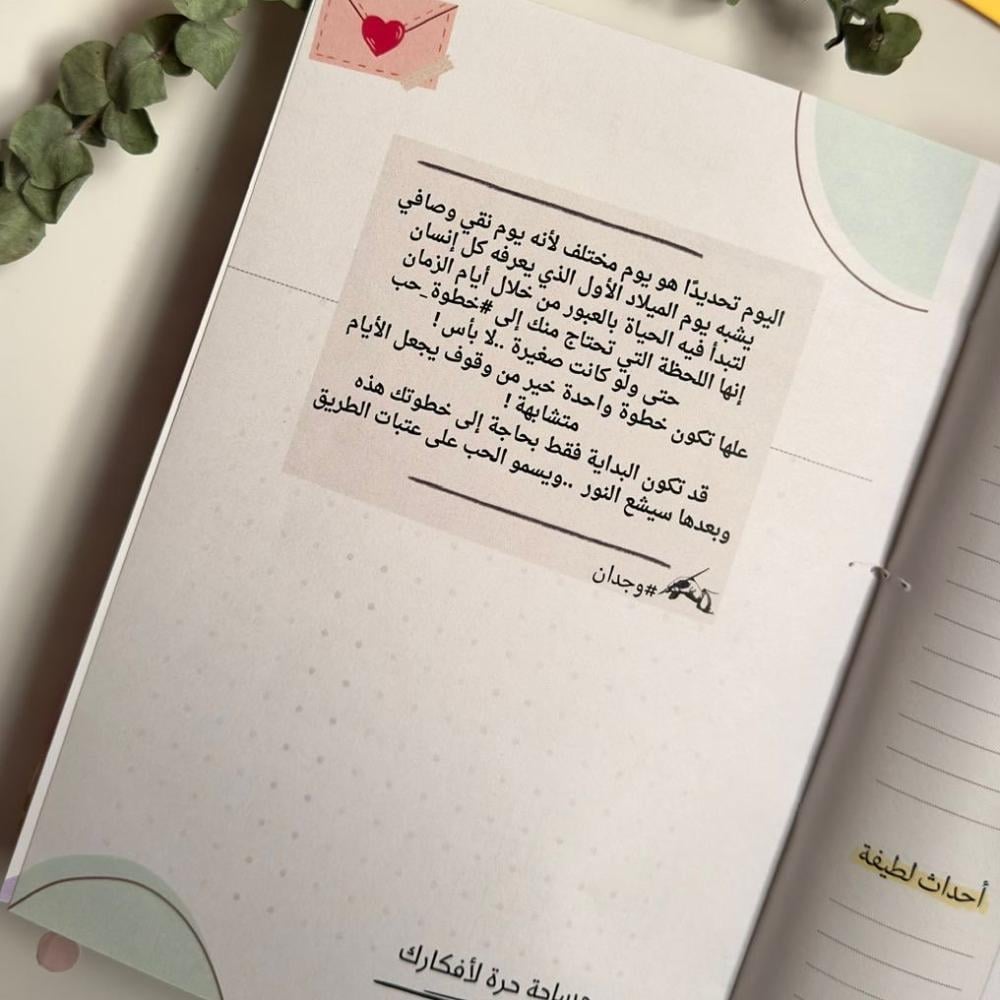 اليوم تحديدًا هو يوم مختلف لأنه يوم نقي وصافي
يشبه يوم الميلاد الأول الذي يعرفه كل إنسان
لتبدأ فيه الحياة بالعبور من خلال أيام الزمان
إنها اللحظة التي تحتاج منك إلى #خطوة_حب
حتى ولو كانت صغيرة ..لا بأس!
علها تكون خطوة واحدة خير من وقوف يجعل الأيام
متشابهة !
قد تكون البداية فقط بحاجة إلى خطوتك هذه
وبعدها سيشع النور ..ويسمو الحب على عتبات الطريق
#وجدان
مساحة حرة لأفكارك
أحداث لطيفة